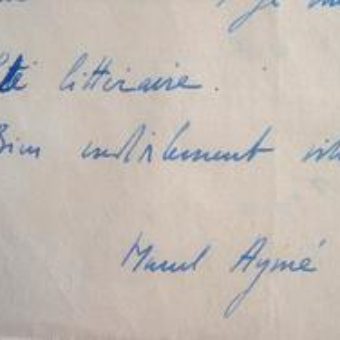 , je
té littéraire.
Bien cordialement
Marcel Aymé